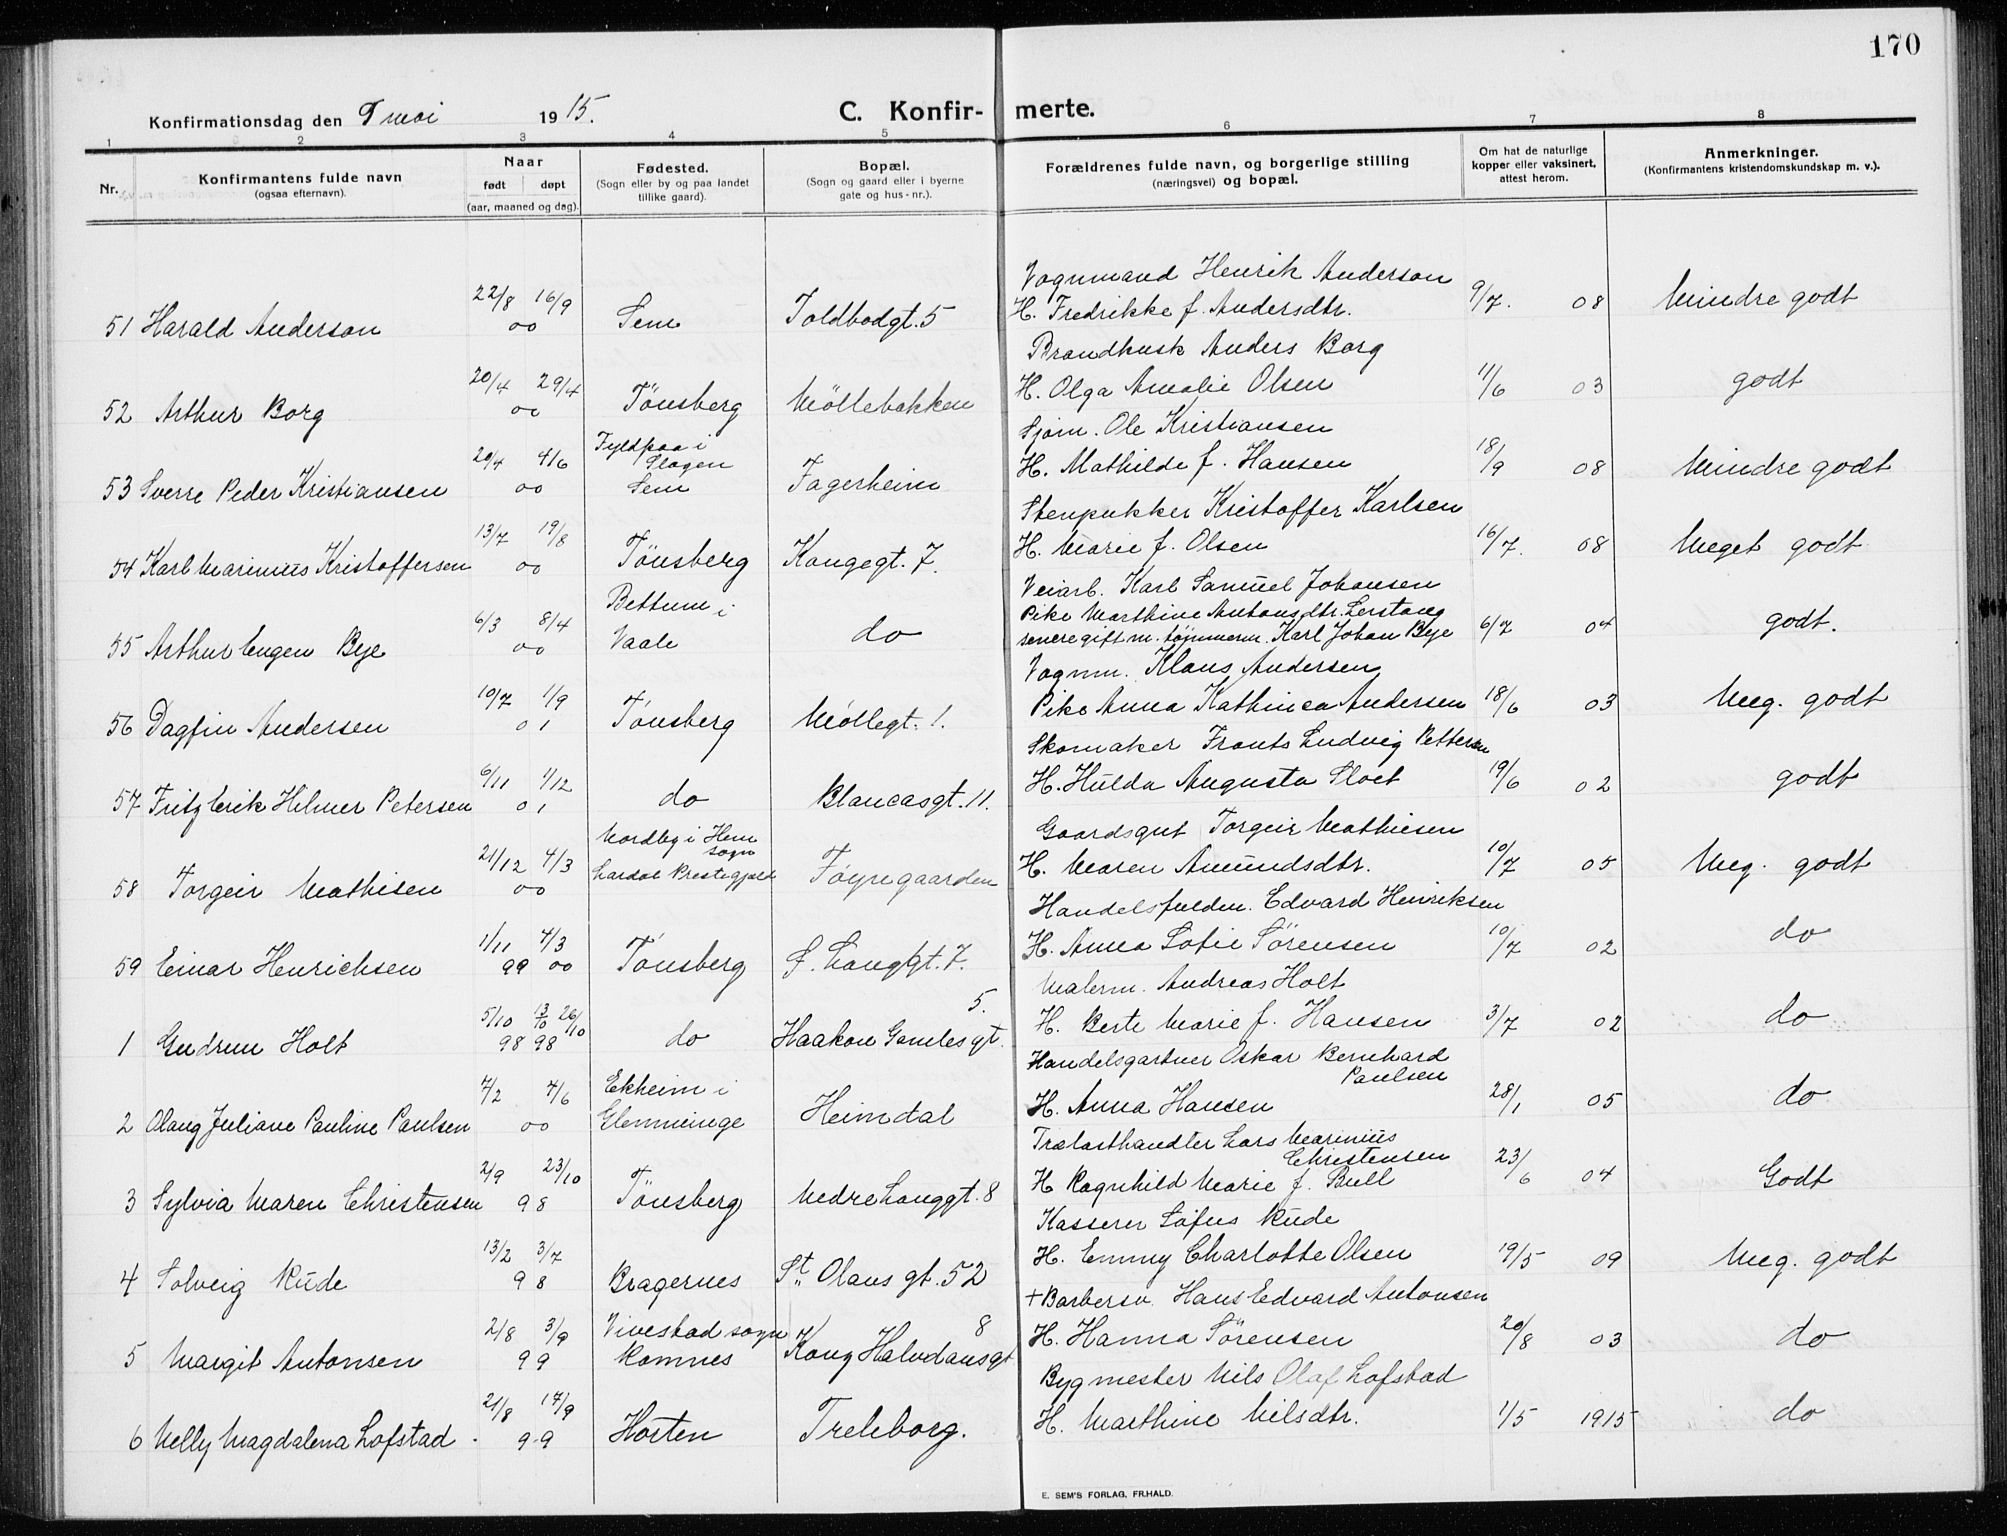 170
Konfirmationsdag den 9 mai 1915.
C. Konfir- merte.
1 2 3 4 5 6 7 8
Nr. Konfirmantens fulde navn (ogsaa efternavn). Naar født døpt (aar, maaned og dag). Fødested. (Sogn eller by og paa landet tillike gaard). Bopæl. (Sogn og gaard eller i byerne gate og hus-nr.). Forældrenes fulde navn, og borgerlige stilling (næringsvei) og bopæl. Om hat de naturlige kopper eller vaksinert, attest herom. Anmerkninger. (Konfirmantens kristendomskundskap m. v.).
Vognmand Henrik Anderson
51 Harald Anderson 22/8 16/9 00 Sem Toldbodgt. 5 H. Fredrikke f. Andersdtr. 9/7. 08 Mindre godt
Brandkusk Anders Borg
52 Arthur Borg 20/4 29/4 00 Tönsberg Möllebakken H. Olga Amalie Olsen 11/6 03 godt
Sjøm. Ole Kristiansen
53 Sverre Peder Kristiansen 20/4 4/6 00 Fyldpaa i Slagen Sem Fagerheim H. Mathilde f. Hansen 18/9 08 Mindre godt
Stenpukker Kristoffer Karlsen
54 Karl Marinius Kristoffersen 13/7 19/8 00 Tönsberg Kongegt. 7. H. Marie f. Olsen 16/7. 08 Meget godt
Veiarb. Karl Samuel Johansen
Pike Marthine Antonsdtr. Lerstang
55 Arthur Eugen Bye 6/3 8/4 00 Bettum i Vaale do senere gift m. tømmerm. Karl Johan Bye 6/7 04 godt.
Vognm. Klaus Andersen
56 Dagfin Andersen 10/7 1/9 01 Tönsberg Möllegt. 1. Pike Anna Kathinca Andersen 18/6 03 Meg. godt
Skomaker Frants Ludvig Pettersen
57 Fritz Erik Hilmer Petersen 6/11 1/12 01 do Blancasgt. 11. H. Hulda Augusta Sloet 19/6 02 godt
Gaardsgut Torgeir Mathiesen
58 Torgeir Mathisen 21/12 4/3 00 Nordby i Hem sogn Lardal Prestegjæld Föyregaarden H. Maren Amundsdtr. 10/7 05 Meg. godt
Handelsfuldm. Edvard Henriksen
59 Einar Henrichsen 1/11 4/3 99 00 Tönsberg S. Langgt. 7. H. Anna Sofie Sörensen 10/7 02 do
Malerm. Andreas Holt
1 Gudrun Holt 5/10 13/10 26/10 98 98 do Haakon Gamlesgt. 5. H. Berte Marie f. Hansen 3/7 02 do
Handelsgartner Oskar Bernhard Paulsen
2 Olaug Juliane Pauline Paulsen 4/2 4/6 00 Ekheim i Glemminge Heimdal H. Anna Hansen 28/1 05 do
Trælasthandler Lars Marinius Christensen
3 Sylvia Maren Christensen 2/9 23/10 98 Tönsberg Nedre Langgt. 8 H Ragnhild Marie f. Bull 23/6 04 Godt
Kasserer Sofus Rude
4 Solveig Rude 13/2 3/7 98 Bragernes St. Olavs gt. 52 H. Emmy Charlotte Olsen 19/5 09 Meg. godt
+ Barbersv. Hans Edvard Antonsen
5 Margit Antonsen 2/8 3/9 99 Vivestad sogn Ramnes Kong Halvdansgt 8 H. Hanna Sörensen 20/8 03 do
Bygmester Nils Olaf Lofstad
6 Nelly Magdalena Lofstad 21/8 17/9 99 Horten Treleborg. H. Marthine Nilsdtr. 1/5 1915 do
E. SEM'S FORLAG, FR.HALD.